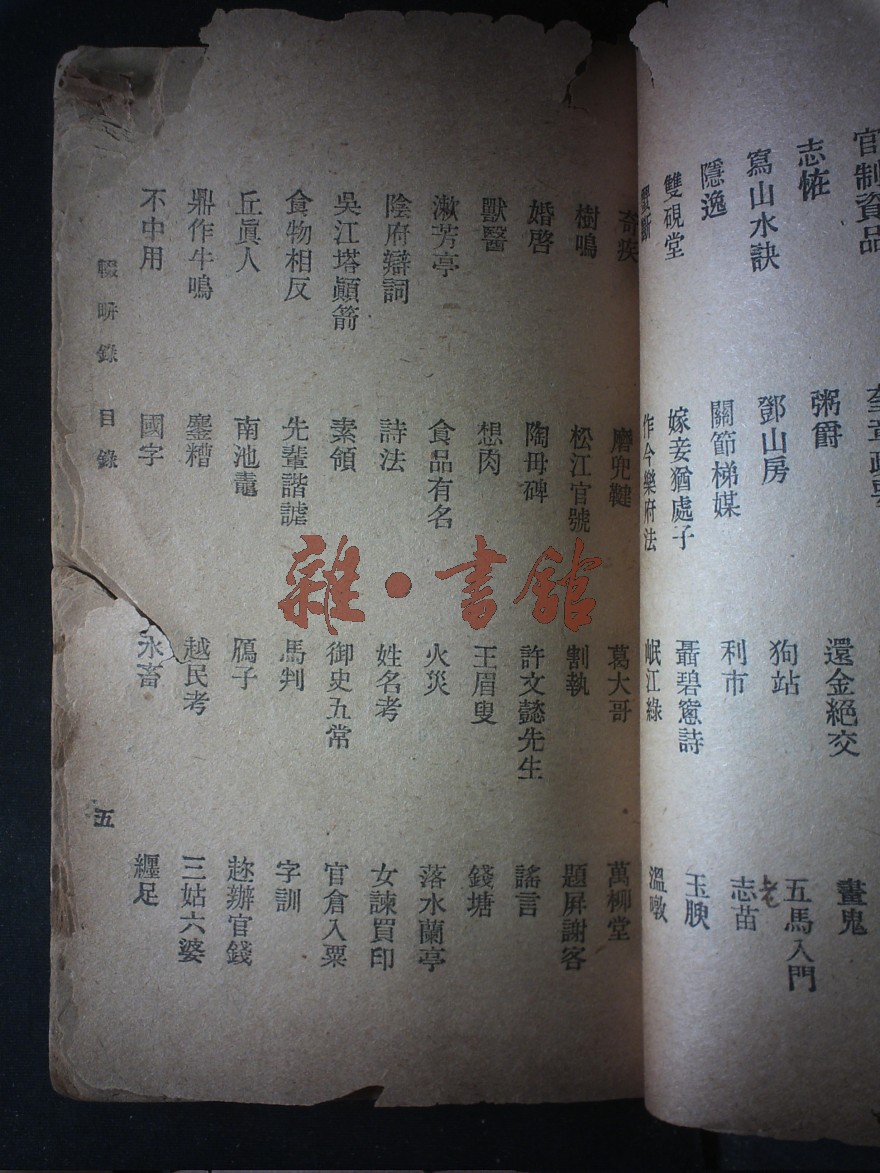 官制資品
志恠 粥爵 還金絕交 畫鬼
寫山水訣 鄧山房 狗站 五馬入門
老
隱逸 關節梯媒 利市 志苗
雙硯堂 嫁妾猶處子 聶碧窻詩 玉腴
作今樂府法 岷江綠 溫暾
奇疾 磨兜鞬 葛大哥 萬柳堂
樹鳴 松江官號 割執 題屏謝客
婚啓 陶母碑 許文懿先生 謠言
獸醫 想肉 王眉叟 錢塘
漱芳亭 食品有名 火災 落水蘭亭
陰府辯詞 詩法 姓名考 女諫買印
吳江塔顚箭 素領 御史五常 官倉入粟
食物相反 先輩諧謔 馬判 字訓
丘眞人 南池鼃 鴈子 趂辦官錢
鼎作牛鳴 鏖糟 越民考 三姑六婆
不中用 國字 氷畜 纏足
輟畊錄 目錄 五
雜·書館